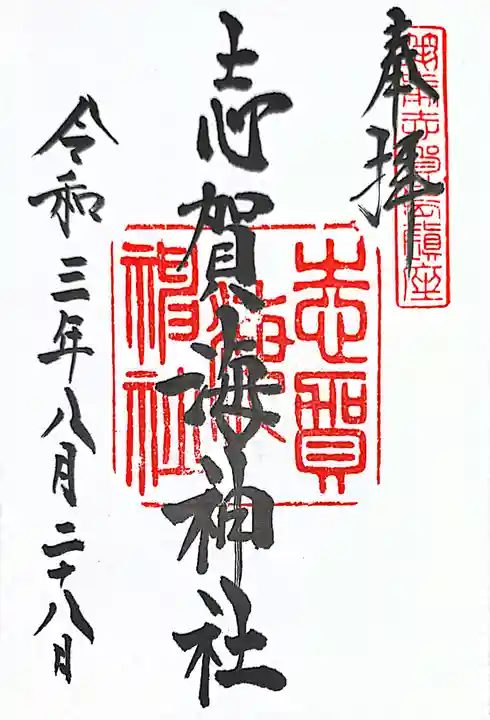 奉拝
志賀海神社
令和三年八月二十八日
志賀
神社